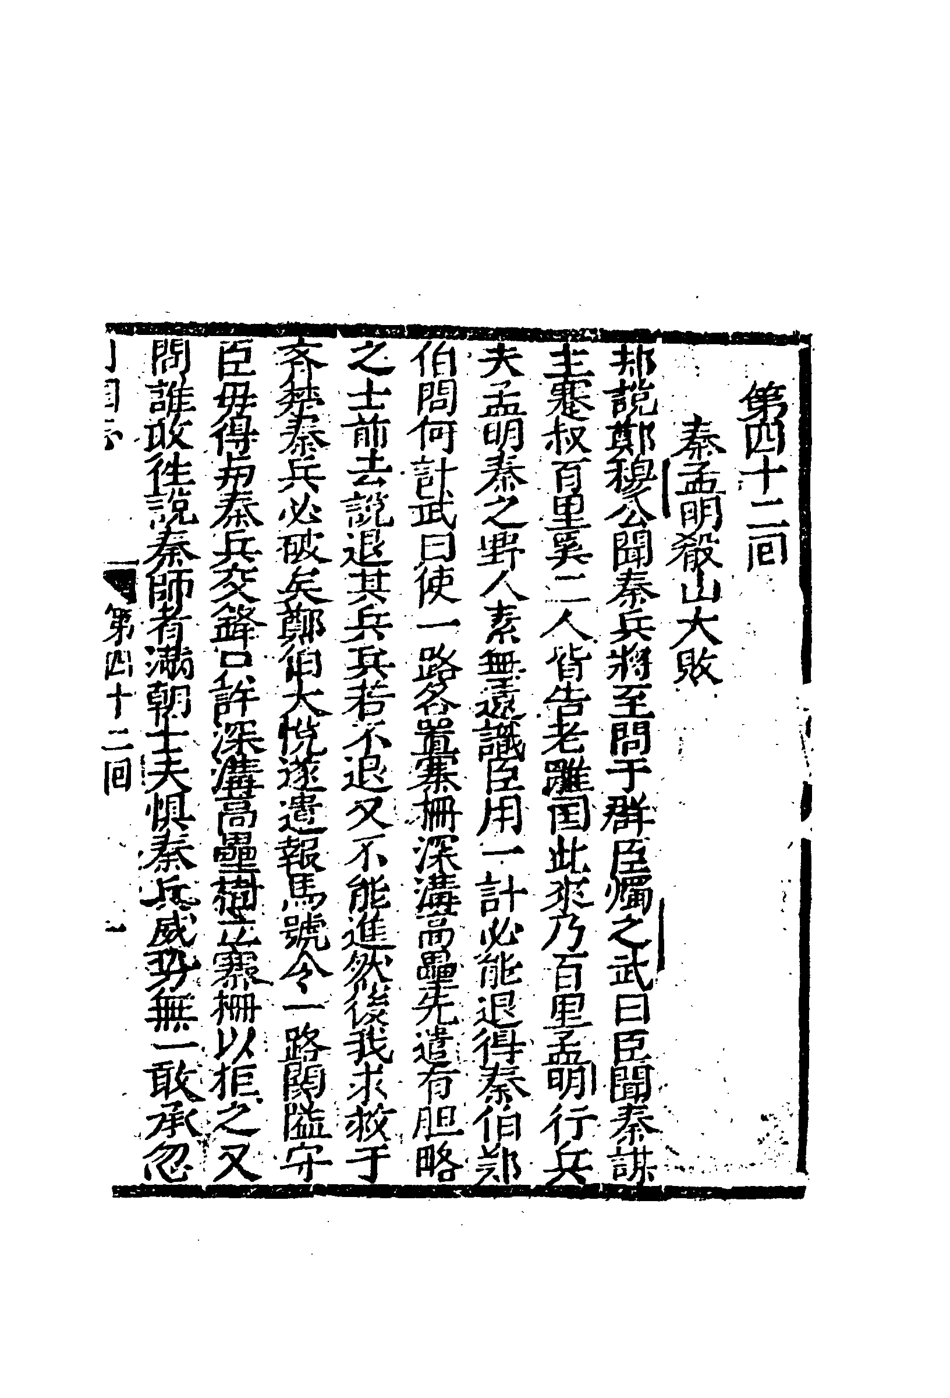 第四十二回
秦孟明殽山大敗
却說鄭穆公聞秦兵將至問于群臣燭之武曰臣聞秦謀
主蹇叔百里奚二人皆告老離国此來乃百里孟明行兵
夫孟明秦之野人素無遠識臣用一計必能退得秦伯鄭
伯問何計武曰使一路各置寨柵深溝高壘先遣有胆略
之士前去說退其兵兵若不退又不能進然後我求救于
齐楚秦兵必破矣鄭伯大悅遂遣報馬號令一路関隘守
臣毋得与秦兵交鋒只許深溝高壘樹立寨柵以拒之又
問誰敢徃說秦師者滿朝士夫惧秦兵威势無一敢承忽
列国志
第四十二回
一